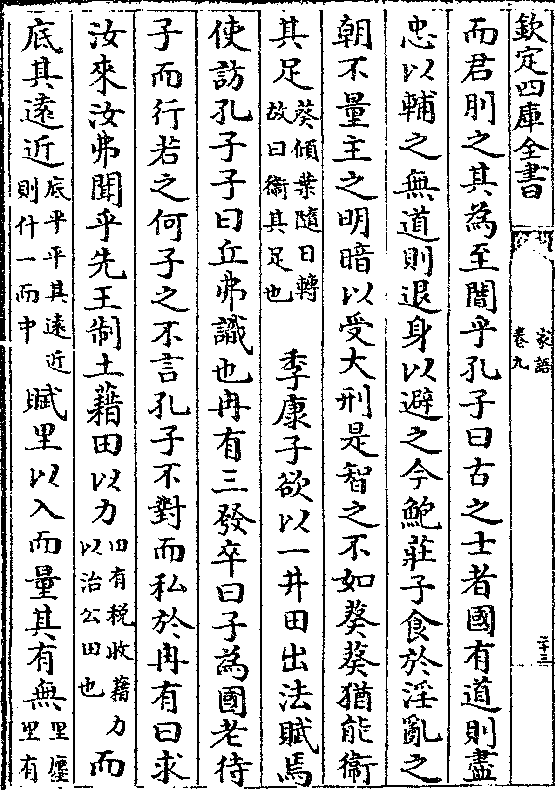 欽定四庫全書
家語
卷九
二十三
而君刖之其為至闇乎孔子曰古之士者國有道則盡
忠以輔之無道則退身以避之今鮑莊子食於淫亂之
朝不量主之明暗以受大刑是智之不如葵葵猶能衞
其足葵傾葉隨日轉故曰衞其足也　季康子欲以一井田出法賦焉
使訪孔子子曰丘弗識也冉有三發卒曰子為國老待
子而行若之何子之不言孔子不對而私於冉有曰求
汝來汝弗聞乎先王制土藉田以力田有稅收藉力以治公田也而
底其遠近底平平其遠近則什一而中賦里以入而量其有無里廛里有